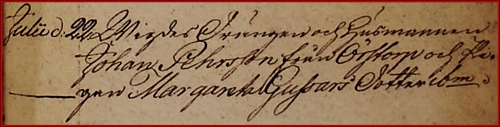 Julii d: 22. Wigdes Drängen och Husmannen
Johan Pehrsson från Örstorp och Pi-
gan Margareta Gussars Dotter ibm.